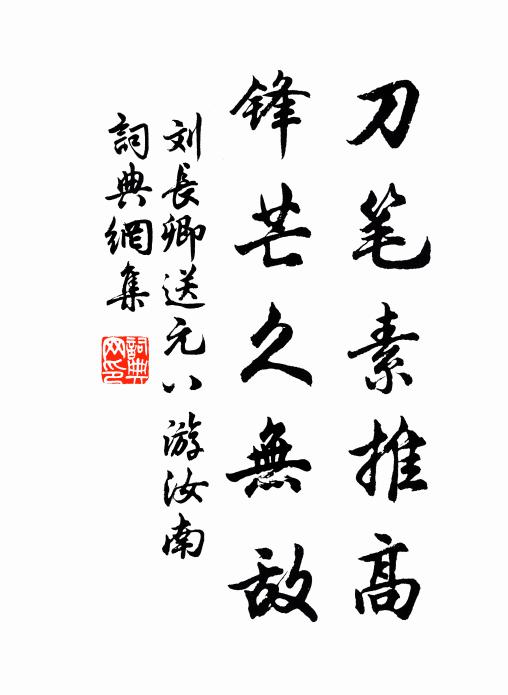 刀笔素推高
锋芒久無敌
刘長卿送元八游汝南
詞典網集
詞典網印